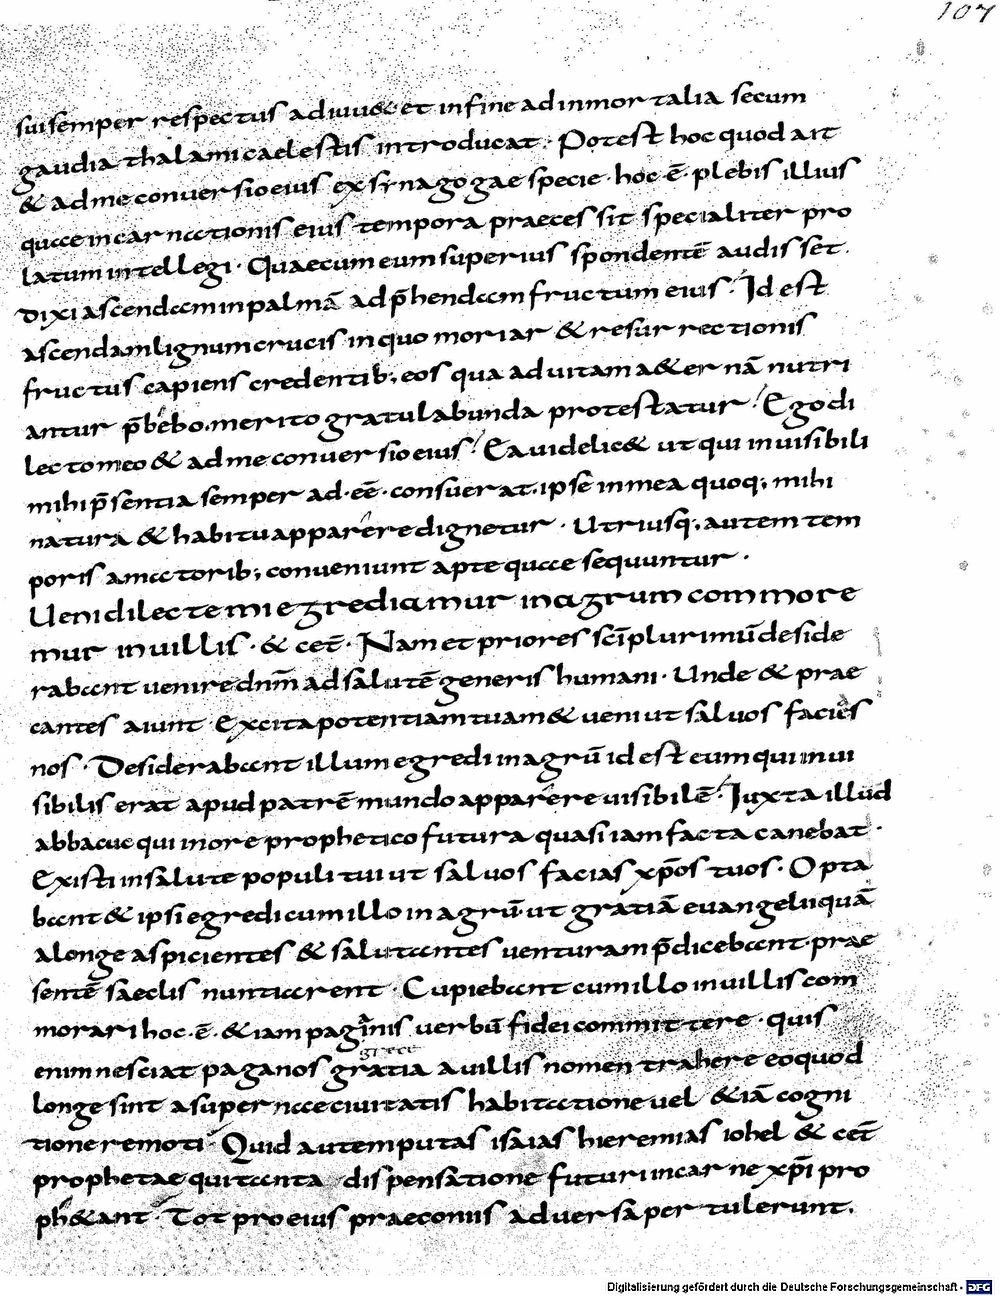 107
sui semper respectus adiuu& et in fine ad inmortalia secum
gaudia thalami caelestis introducat. Potest hoc quod ait
& ad me conuersio eius ex synagogae specie · hoc ē · plebis illius
quae incarnationis eius tempora praecessit specialiter pro
latum intellegi · Quae cum eum superius spondentē audisset
dixi ascendam in palmā adp̄hendam fructum eius · Id est
ascendam lignum crucis in quo moriar & resurrectionis
fructus capiens credentib; eos qua ad uitam a&ernā nutri
antur p̄bebo. merito gratulabunda protestatur · Ego di
lecto meo & ad me conuersio eius · Ea uidelic& ut qui inuisibili
mihi p̄sentia semper ad·eē·consuerat. ipse in mea quoq; mihi
natura & habitu apparere dignetur · Utriusq; autem tem
poris amatorib; conueniunt apte quae sequuntur ·
Ueni dilecte mi egrediamur in agrum commore
mur in uillis · & cet̄ · Nam et priores sc̄i plurimū deside
rabant uenire dnm̄ ad salutē generis humani · Unde & prae
cantes aiunt Excita potentiam tuam & ueni ut saluos facies
nos · Desiderabant illum egredi in agrū id est eum qui inui
sibilis erat apud patrē mundo apparere uisibilē · Iuxta illud
abbacuc qui more prophetico futura quasi iam facta canebat ·
Existi in salute populi tui ut saluos facias xp̄os tuos · Opta
bant & ipsi egredi cum illo in agrū ut gratiā euangelii quā
a longe aspicientes & salutantes uenturam p̄dicebant · prae
sentē saeclis nuntiarent · Cupiebant cum illo in uillis com
morari hoc · ē · &iam paganis uerbū fidei committere · quis
grece
enim nesciat paganos gratia a uillis nomen trahere eo quod
longe sint a supernae ciuitatis habitatione uel &iā cogni
tione remoti · Quid autem putas isaias hieremias iohel & cet̄
prophetae qui tanta dispensatione futuri in carne xp̄i pro
ph&ant · Tot pro eius praeconiis aduersa pertulerunt.
Digitalisierung gefördert durch die Deutsche Forschungsgemeinschaft - DFG